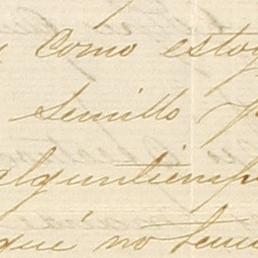 y como estoy
semillo
alguntiemp
qué no